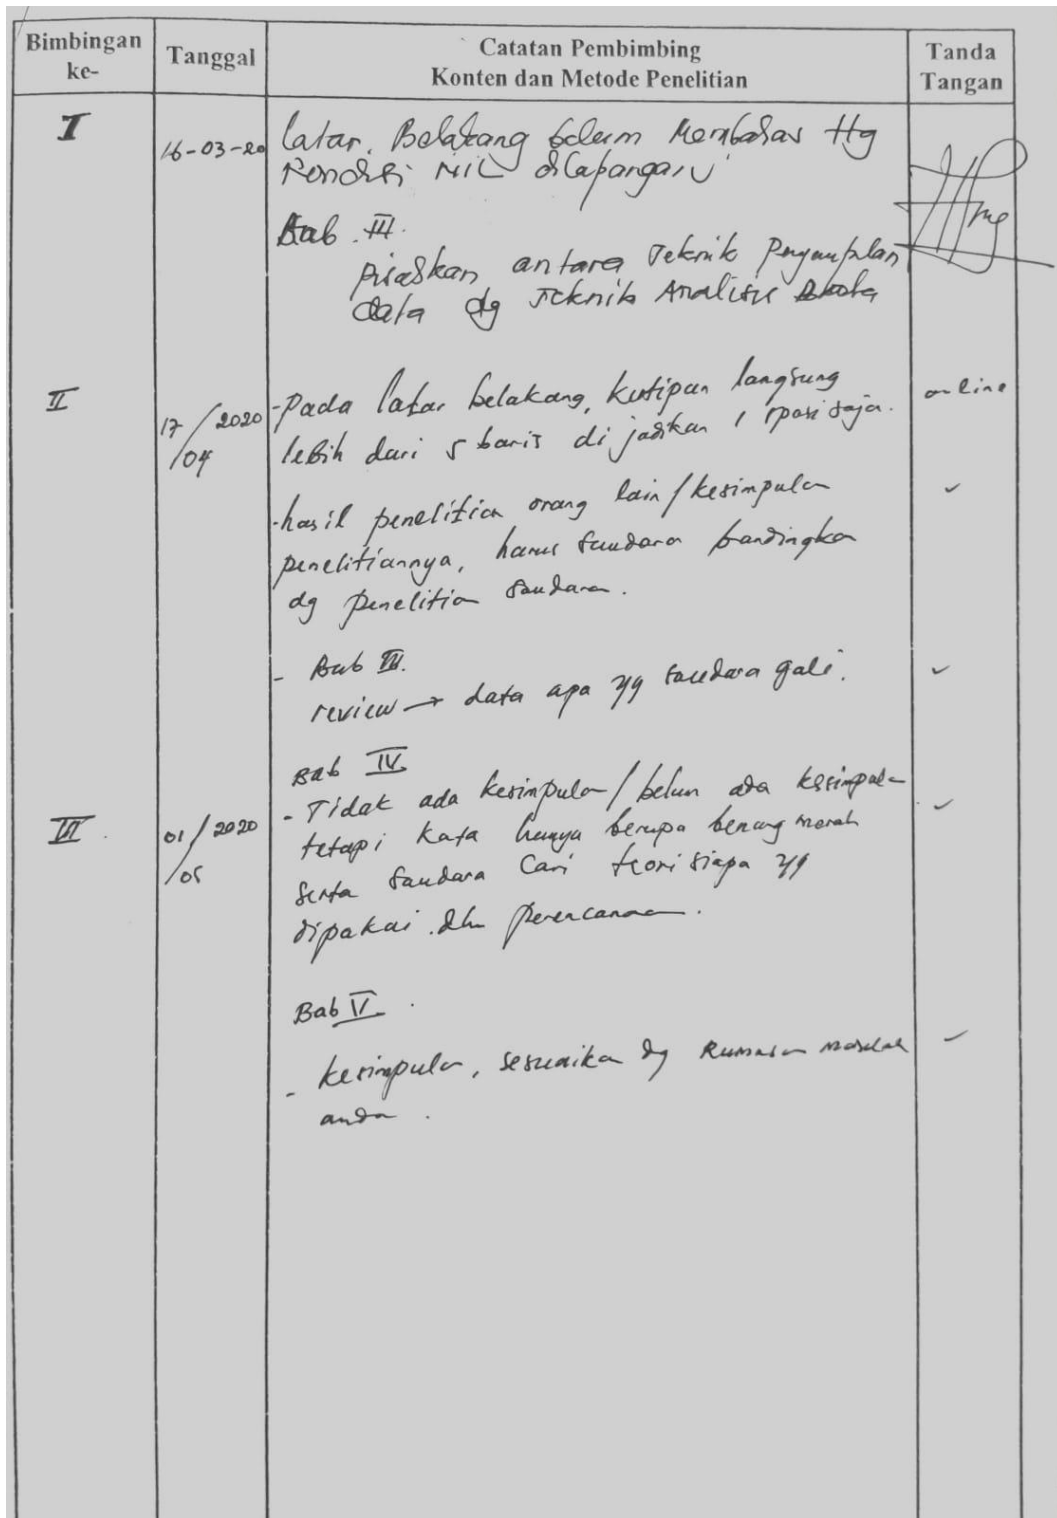 Bimbingan ke-
Tanggal
Catatan Pembimbing
Konten dan Metode Penelitian
Tanda Tangan
I
16-03-20
latar. Belakang belum Membahas ttg
Kondisi riil dilapangan
Bab III.
Pisahkan antara Teknik Pengumpulan
data dg Teknik Analisis Data
II
17/04/2020
- Pada latar belakang, kutipan langsung
lebih dari 5 baris di jadikan 1 spasi saja.
online
- hasil penelitian orang lain/kesimpulan
penelitiannya, harus saudara bandingkan
dg penelitian saudara.
✓
- Bab III.
review → data apa yg saudara gali.
✓
III.
01/05/2020
Bab IV
- Tidak ada kesimpulan/belum ada kesimpulan
tetapi kata hanya berupa benang merah
serta saudara cari teori siapa yg
dipakai dlm perencanaan.
✓
Bab V.
- kesimpulan, sesuaikan dg Rumusan masalah
anda.
✓